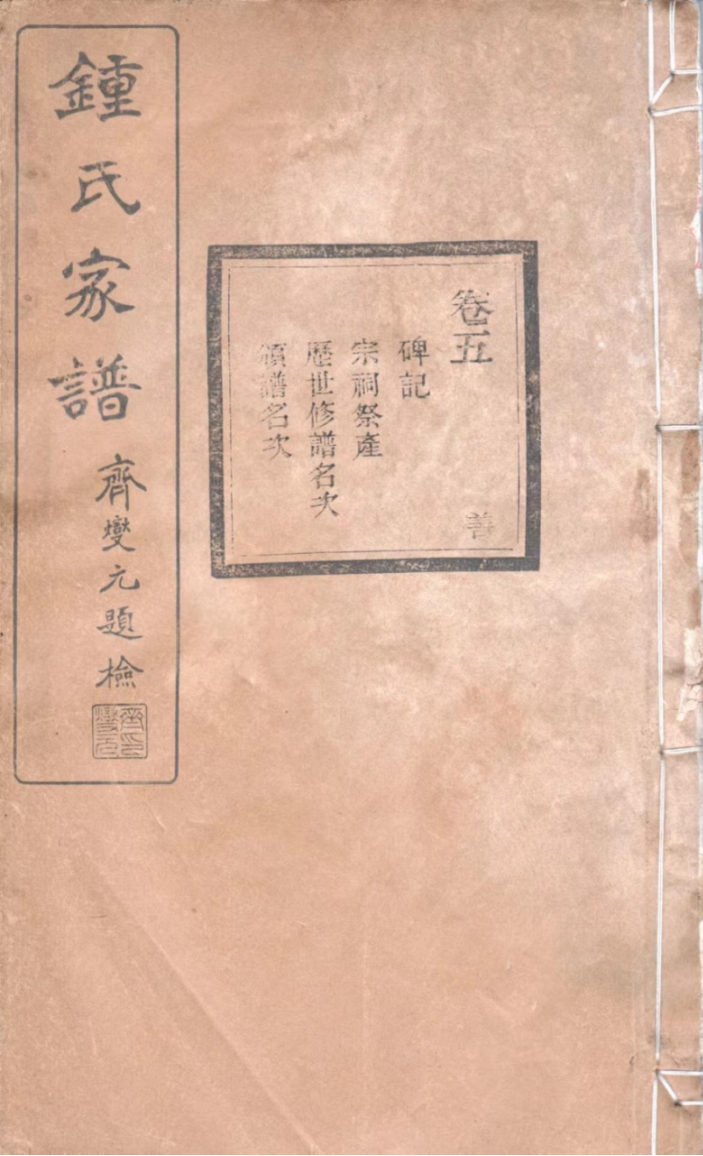 鍾氏家譜
齊燮元題檢
卷五
善
碑記
宗祠祭產
歷世修譜名次
領譜名次